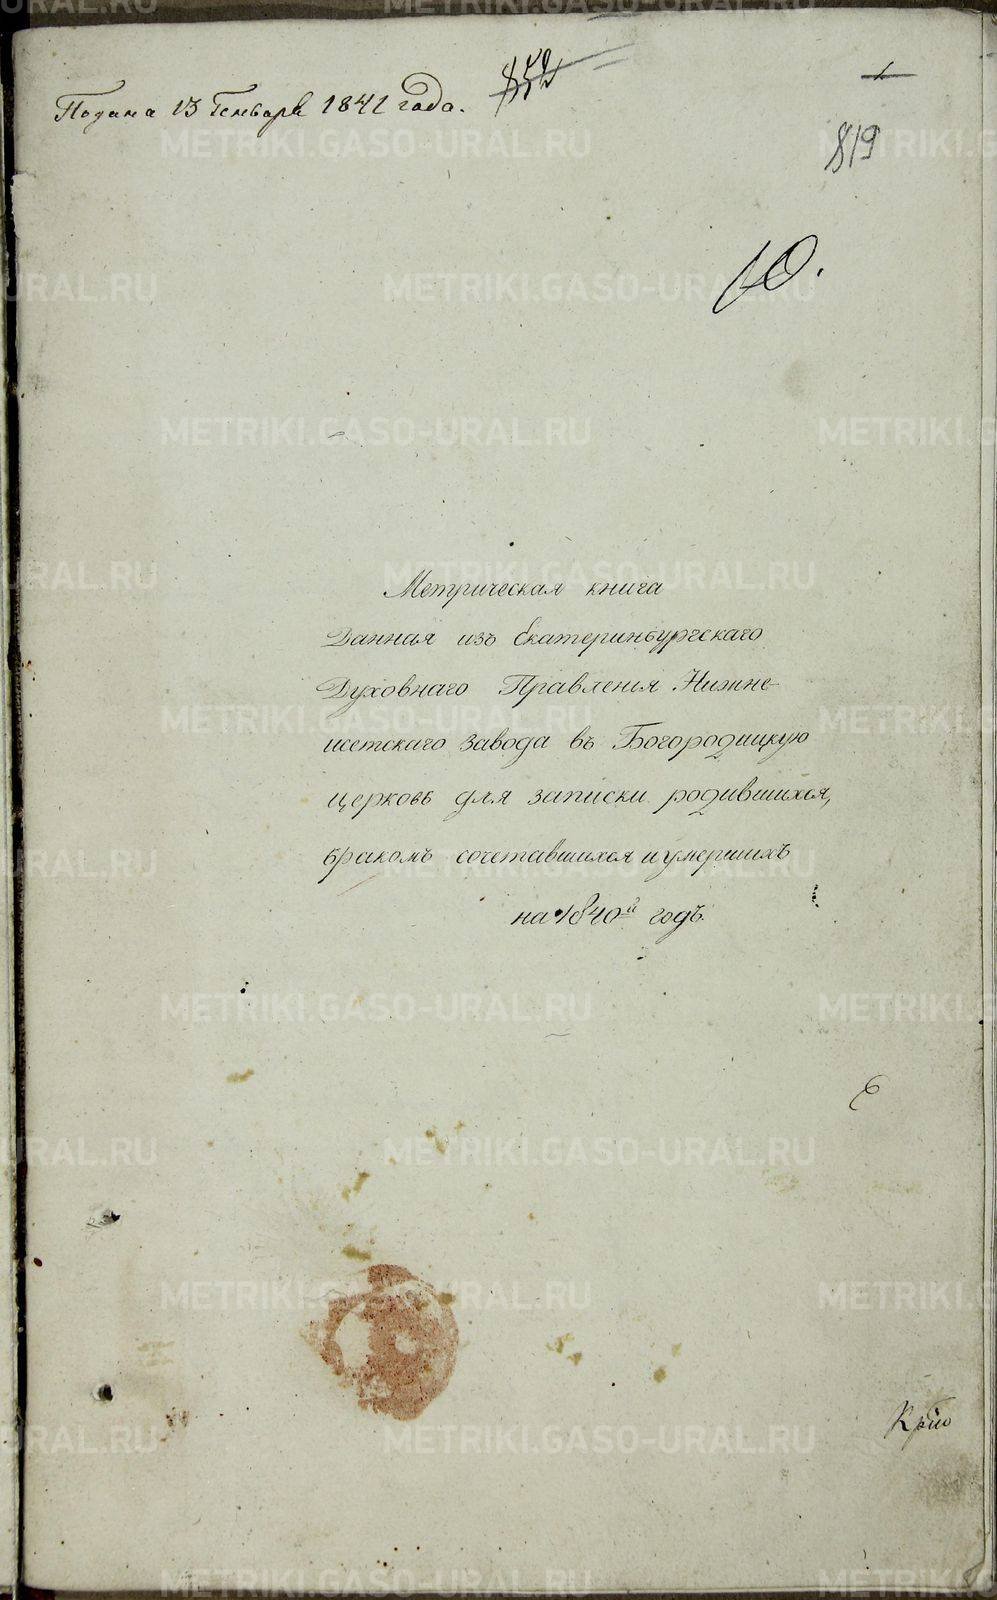 Подана 13 Генваря 1841 года.
1
819
10.
Метрическая книга
Данная изъ Екатеринбургскаго
Духовнаго Правленія Нижне-
исетскаго завода въ Богородицкую
церковь для записки родившихся,
бракомъ сочетавшихся и умершихъ
на 1840й годъ.
METRIKI.GASO-URAL.RU